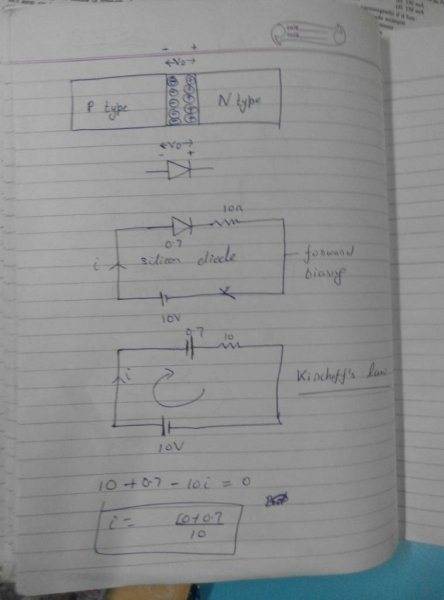 - +
←V₀→
P type
N type
←V₀→
- +
10Ω
0.7
i silicon diode
forward
biasing
10V
0.7
10
i
Kirchoff's law
10V
10 + 0.7 - 10i = 0
i = 10+0.7
10